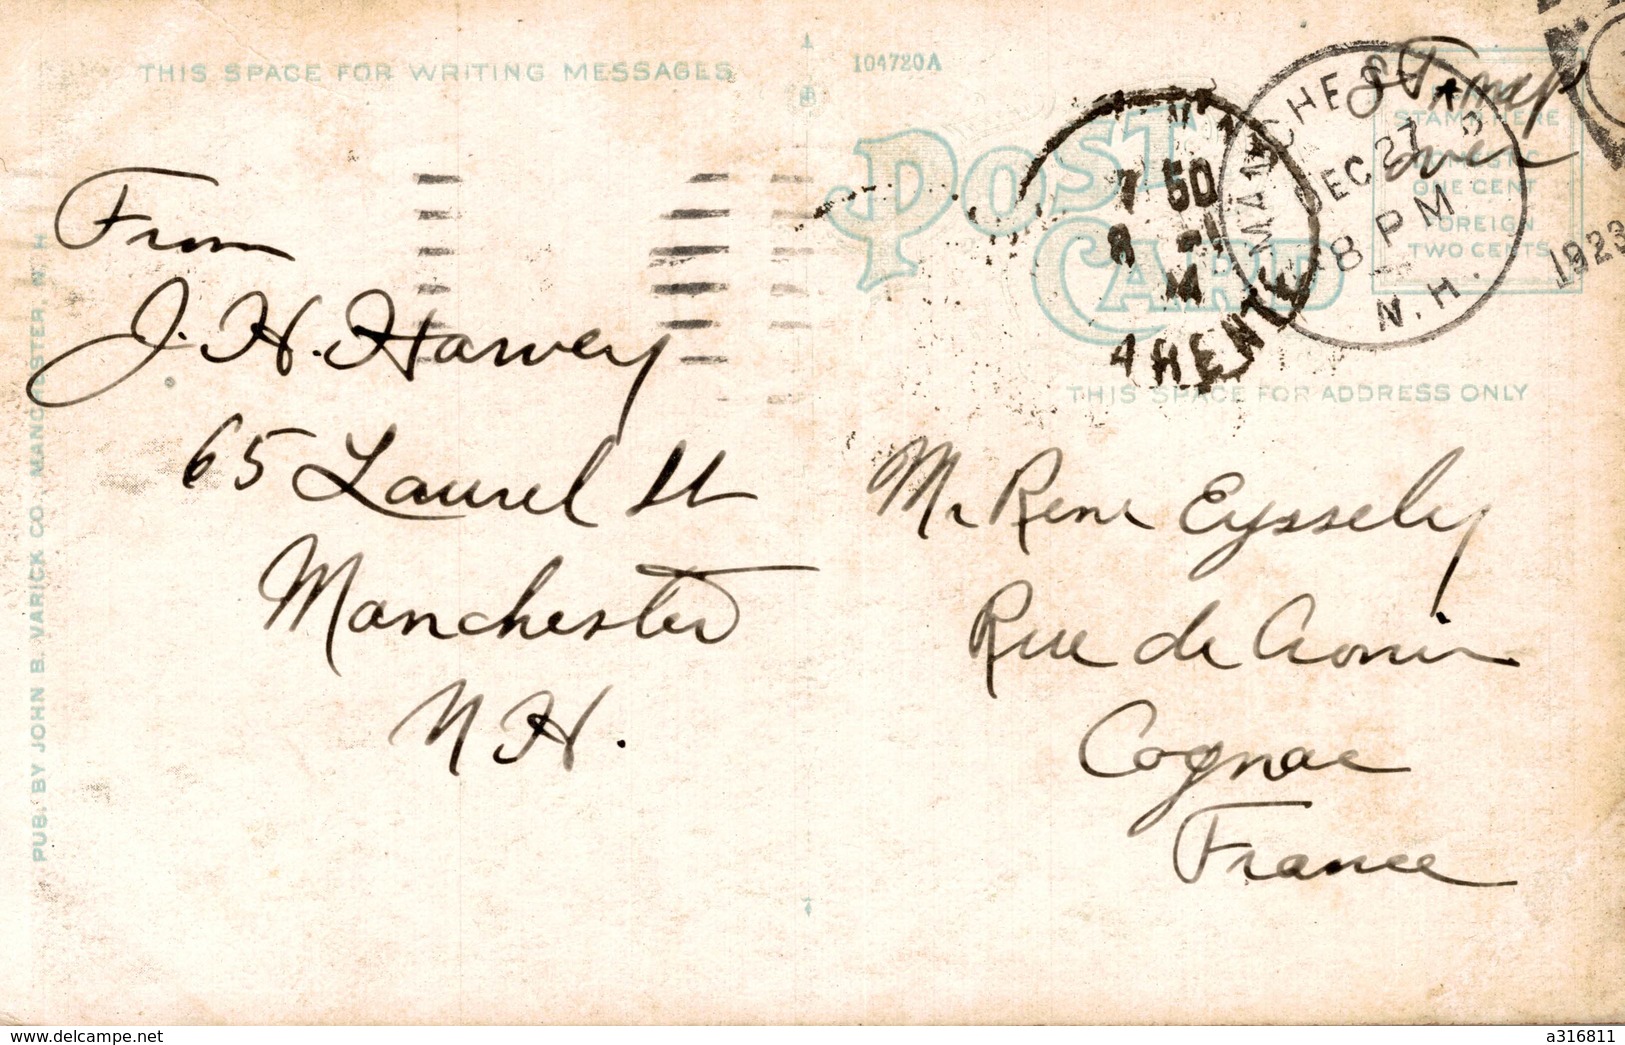 THIS SPACE FOR WRITING MESSAGES
From
J. H. Harvey
65 Laurel St
Manchester
N H.
PUB. BY JOHN B. VARICK CO. MANCHESTER, N. H.
104720A
POST CARD
7 50
8 -1
14
RENTE
MANCHESTER
DEC 27
8 PM
N.H.
1923
Stamp
over
STAMP HERE
ONE CENT
FOREIGN
TWO CENTS
THIS SPACE FOR ADDRESS ONLY
Mr Rene Eyssely
Rue de
Cognac
France
a316811